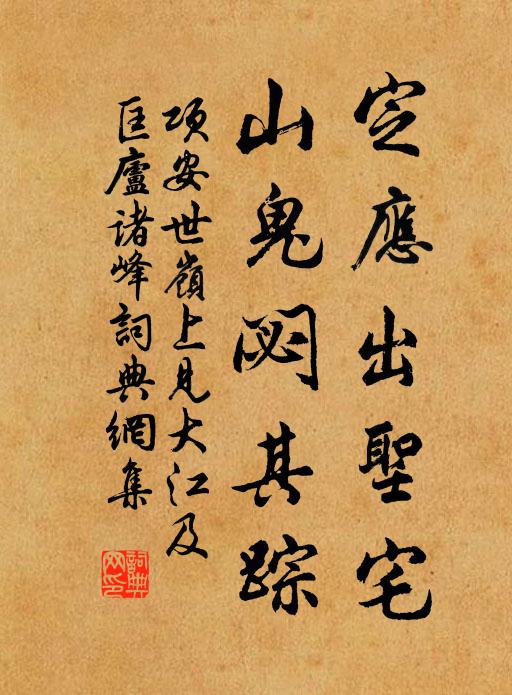 定應出聖宅
山鬼閟其踪
項安世嶺上見大江及
匡廬諸峰詞典網集
詞典網印